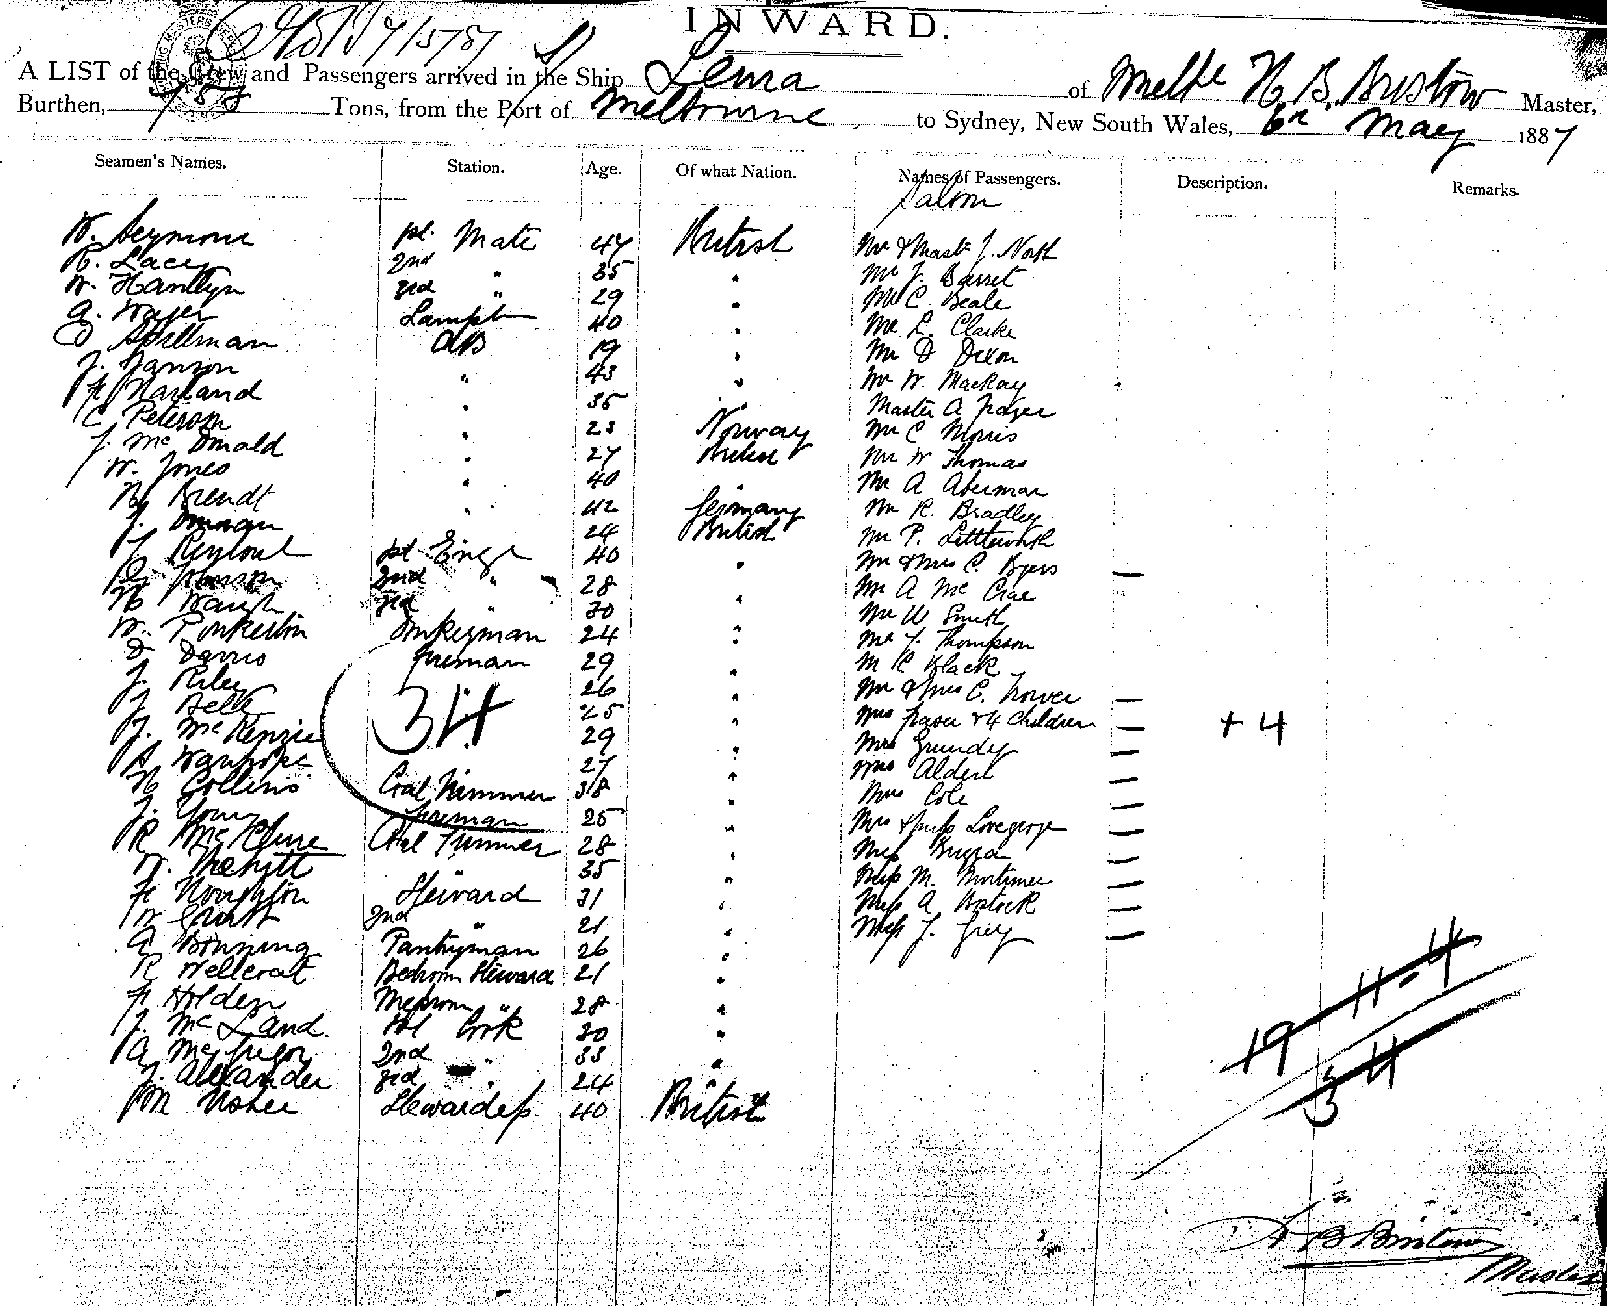 INWARD.
A LIST of the Crew and Passengers arrived in the Ship of Melbe H. B. Bristow Master,
Burthen, 758 Tons, from the Port of Melbourne to Sydney, New South Wales, 6th May 1887
Seamen's Names. Station. Age. Of what Nation. Names of Passengers. Description. Remarks.
Saloon
W. Seymour 1st Mate 47 British Mr & Mast J. North
R. Lacey 2nd " 35 " Mr J. Barret
W. Hamlyn 3rd " 29 " Mr C. Beale
G. 40 " Mr L. Clarke
Spillman AB 19 " Mr D Dixon
J. Hanson " 43 " Mr W. Mackay
Harland " 35 Master A Fraser
C Peterson " 23 Norway Mr C Morris
J. McDonald " 27 British Mr W Thomas
W. Jones " 40 " Mr A Aberman
H Brendt " 42 Germany Mr R. Bradley
J. 24 British Mr P. Littleworth
1st Engr 40 " Mr & Mrs C. Byers —
Johnson 2nd " 28 " Mr A McCrae
H Waugh 3rd " 30 " Mr W Smith
W. Pinkerton Donkeyman 24 " Mr J. Thompson
D Davies Fireman 29 " M R Black
J. Riley 26 " Mr & Mrs C. —
J. Bell 34 25 " Mrs Fraser & 4 Children — + 4
J. McKenzie 29 " Mrs Grundy —
27 " Mrs Alden —
H Collins Coal Trimmer 38 " Mrs Cole —
J. Young Fireman 25 " Mrs & Miss Lovegrove —
R McClure Coal Trimmer 28 " Miss —
W. 35 Miss M. Mortimer —
H Houghton Steward 31 " Miss A Bostock —
W 2nd " 21 " Miss J. Grey —
A Bonning Pantryman 26 "
R Bedroom Steward 21 "
H Holden Messroom " 28 "
J. McLand 1st Cook 30 "
A McGregor 2nd " 33 "
J. Alexander 3rd " 24
M Usher Stewardess 40 British
19 11 - 4
34
H B Bristow
Master